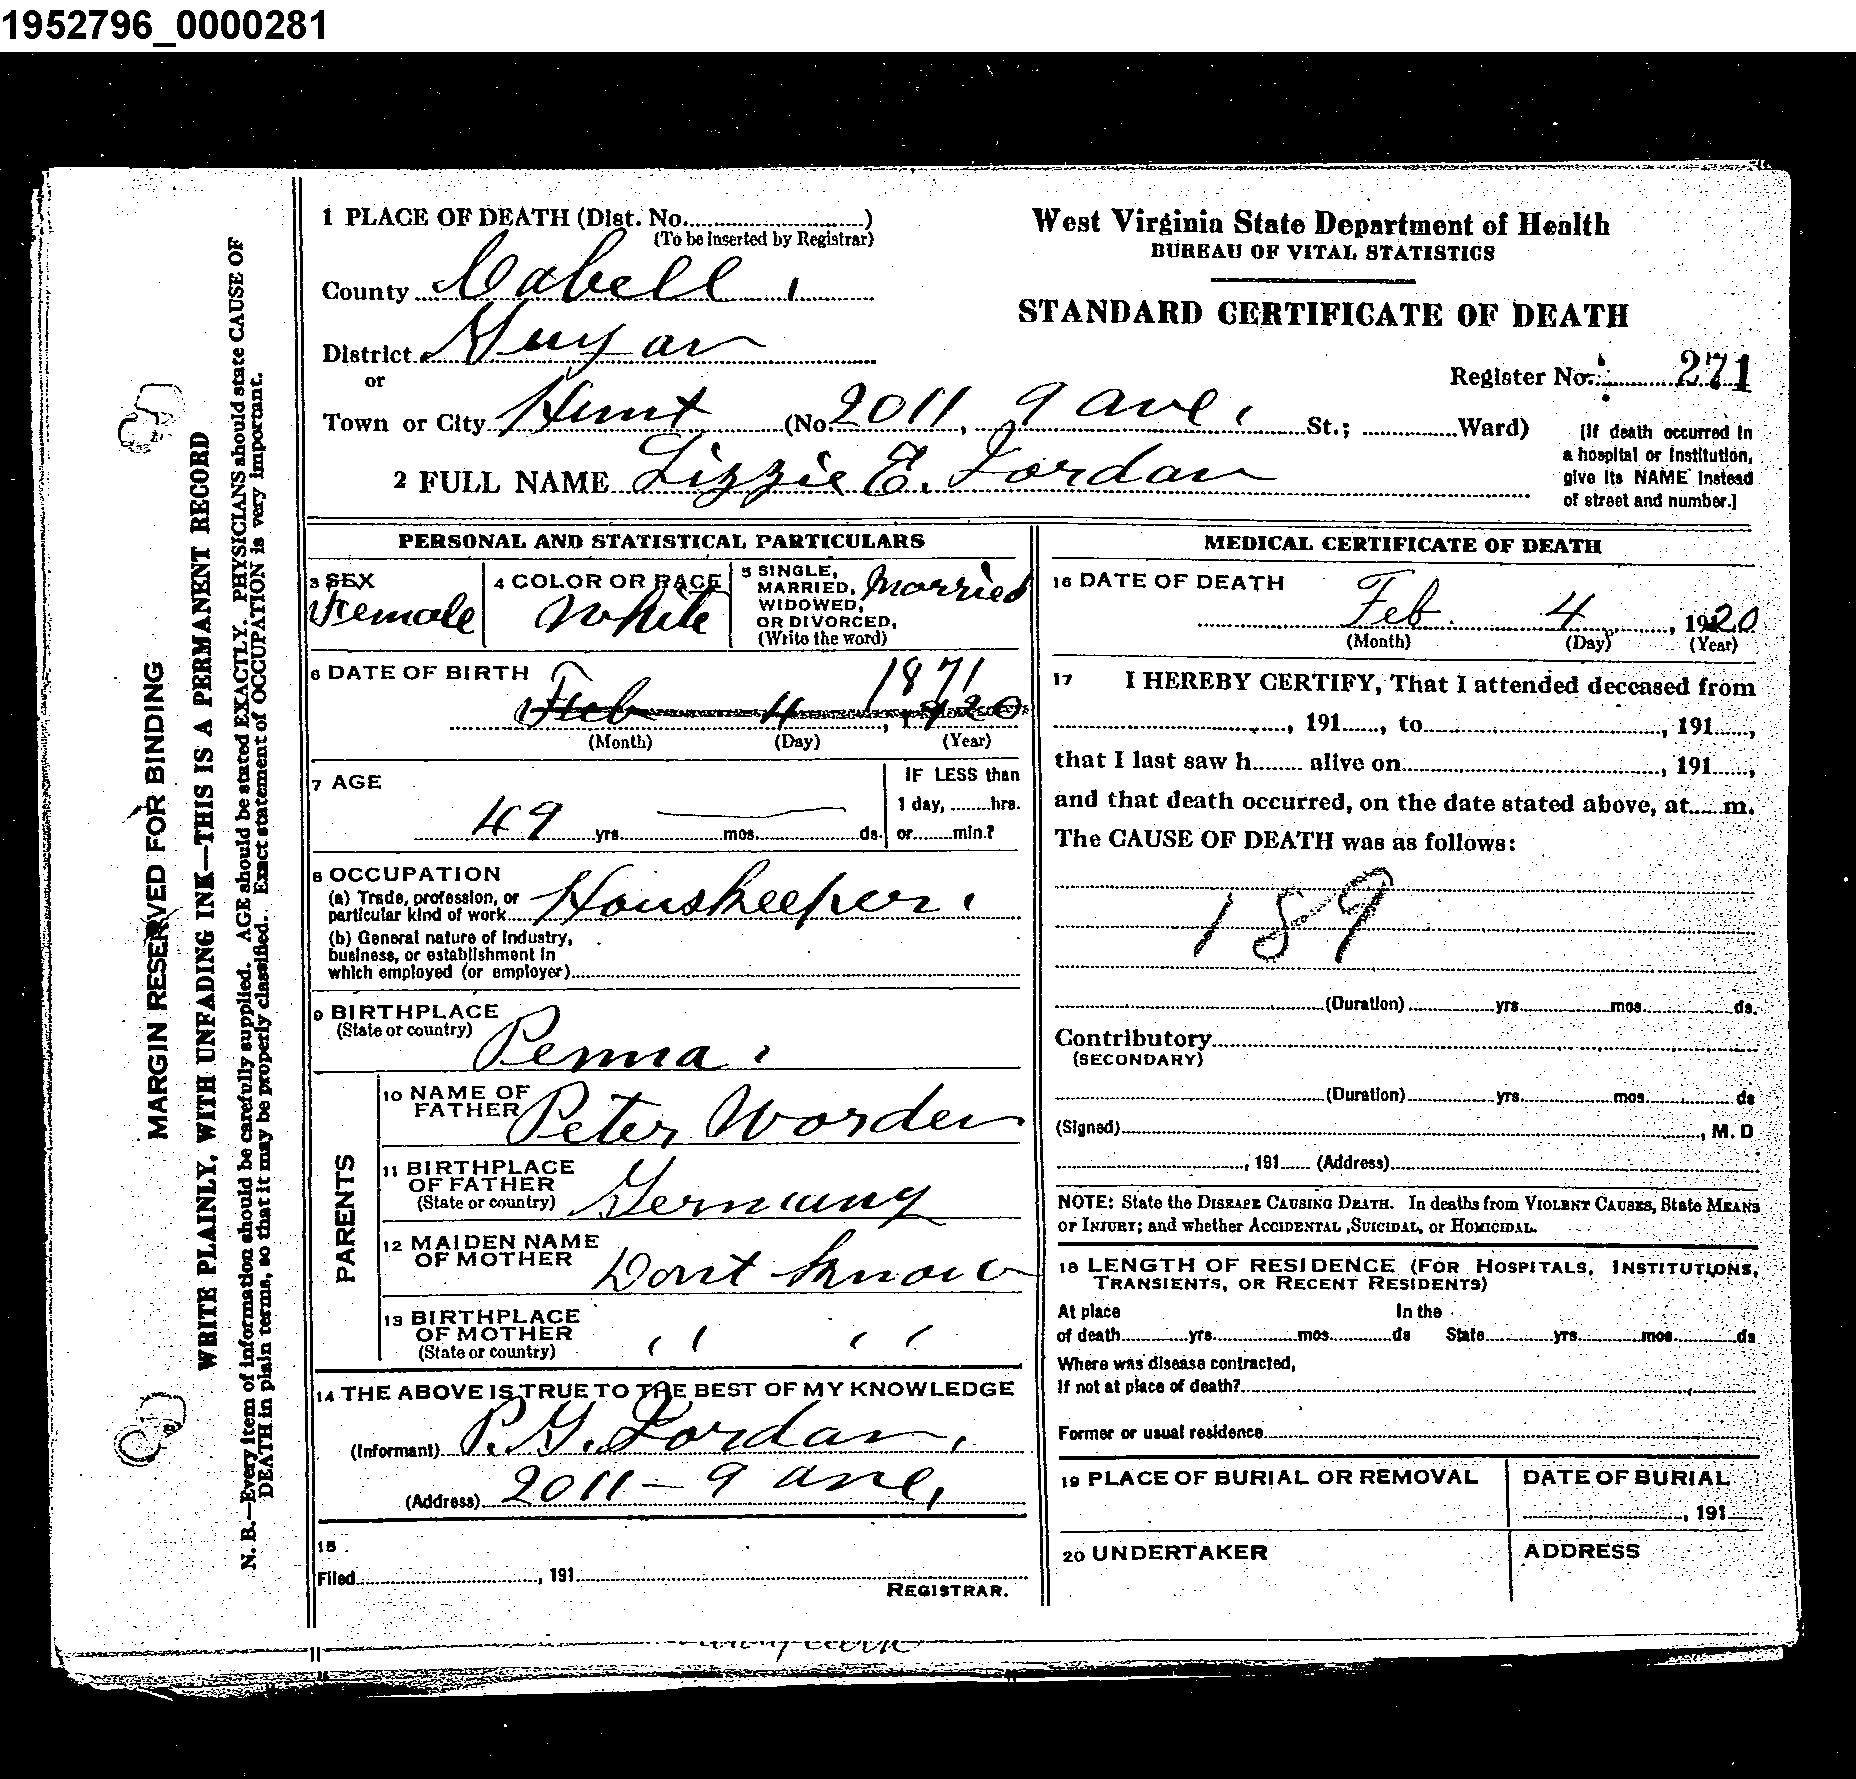 1952796_0000281
MARGIN RESERVED FOR BINDING
WRITE PLAINLY, WITH UNFADING INK—THIS IS A PERMANENT RECORD
N. B.—Every item of information should be carefully supplied. AGE should be stated EXACTLY. PHYSICIANS should state CAUSE OF
DEATH in plain terms, so that it may be properly classified. Exact statement of OCCUPATION is very important.
1 PLACE OF DEATH (Dist. No. )
(To be inserted by Registrar)
County Cabell
District Guyan
or
Town or City Hunt (No 2011, 9 ave, St.; Ward)
2 FULL NAME Lizzie E. Jordan
West Virginia State Department of Health
BUREAU OF VITAL STATISTICS
STANDARD CERTIFICATE OF DEATH
Register No. 271
[If death occurred in
a hospital or institution,
give its NAME instead
of street and number.]
PERSONAL AND STATISTICAL PARTICULARS
3 SEX
Female
4 COLOR OR RACE
White
5 SINGLE,
MARRIED,
WIDOWED,
OR DIVORCED,
(Write the word)
Married
6 DATE OF BIRTH
1871
Feb 4 , 1920
(Month) (Day) (Year)
7 AGE
49 yrs. mos. ds.
IF LESS than
1 day, hrs.
or min.?
8 OCCUPATION
(a) Trade, profession, or
particular kind of work Houskeeper.
(b) General nature of industry,
business, or establishment in
which employed (or employer)
9 BIRTHPLACE
(State or country)
Penna.
PARENTS
10 NAME OF
FATHER Peter Worden
11 BIRTHPLACE
OF FATHER
(State or country) Germany
12 MAIDEN NAME
OF MOTHER Dont know
13 BIRTHPLACE
OF MOTHER
(State or country) " "
14 THE ABOVE IS TRUE TO THE BEST OF MY KNOWLEDGE
(Informant) P. G. Jordan,
(Address) 2011 – 9 ave,
15
Filed , 191
REGISTRAR.
MEDICAL CERTIFICATE OF DEATH
16 DATE OF DEATH
Feb 4 , 1920
(Month) (Day) (Year)
17 I HEREBY CERTIFY, That I attended deceased from
, 191 , to , 191 ,
that I last saw h alive on , 191 ,
and that death occurred, on the date stated above, at m.
The CAUSE OF DEATH was as follows:
189
(Duration) yrs. mos. ds.
Contributory
(SECONDARY)
(Duration) yrs. mos. ds
(Signed) , M. D
, 191 (Address)
NOTE: State the DISEASE CAUSING DEATH. In deaths from VIOLENT CAUSES, State MEANS
OF INJURY; and whether ACCIDENTAL ,SUICIDAL, or HOMICIDAL.
18 LENGTH OF RESIDENCE (FOR HOSPITALS, INSTITUTIONS,
TRANSIENTS, OR RECENT RESIDENTS)
At place In the
of death yrs. mos. ds State yrs. mos. ds
Where was disease contracted,
If not at place of death?
Former or usual residence
19 PLACE OF BURIAL OR REMOVAL
DATE OF BURIAL
, 191
20 UNDERTAKER
ADDRESS